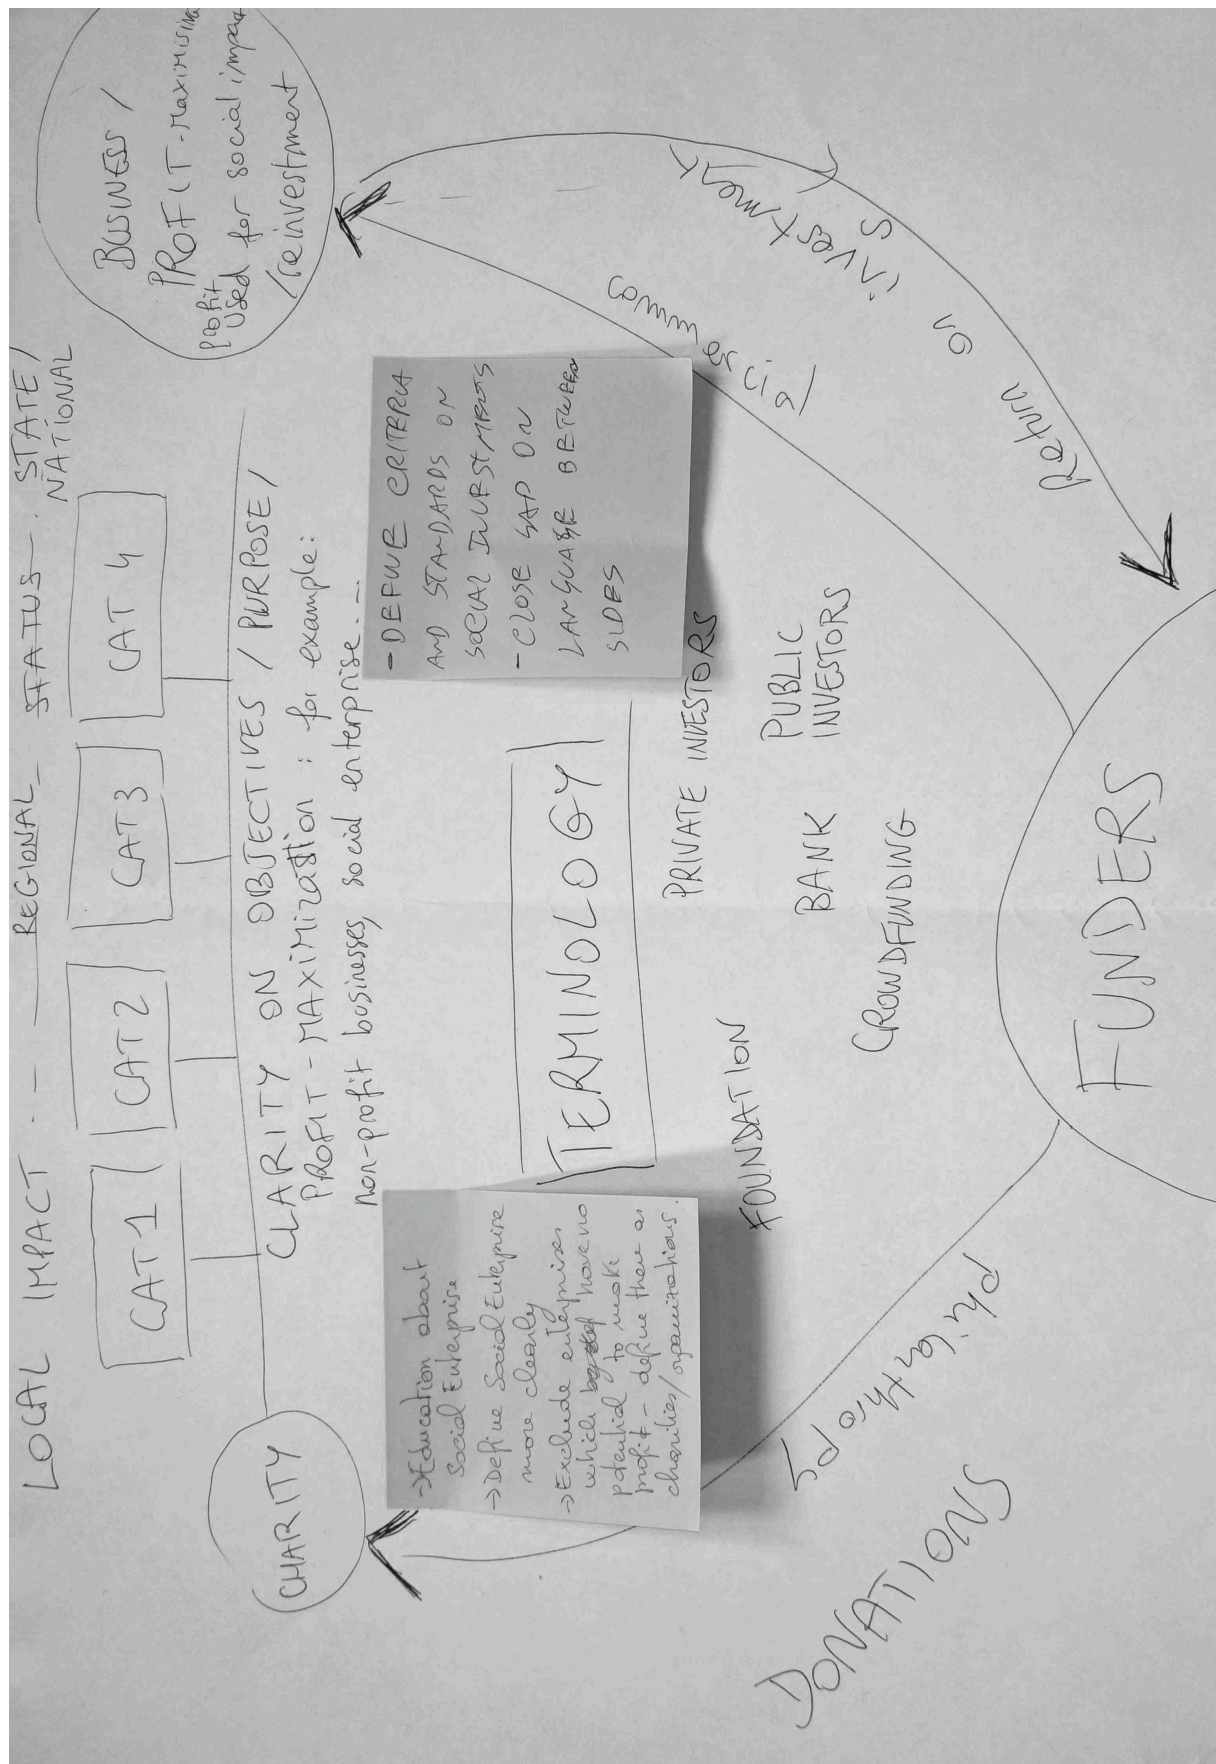 LOCAL IMPACT . - — REGIONAL — STATUS — . STATE /
NATIONAL
CAT 1
CAT 2
CAT 3
CAT 4
CHARITY
BUSINESS /
PROFIT-Maximising
profit
used for social impact
/reinvestment
CLARITY ON OBJECTIVES / PURPOSE /
PROFIT-MAXIMIZATION : for example:
non-profit businesses, social enterprise. --
→ Education about
Social Enterprise
→ Define Social Enterprise
more clearly
→ Exclude enterprises
which have no
potential to make
profit - define them as
charities/organisations.
TERMINOLOGY
- DEFINE CRITERIA
AND STANDARDS ON
SOCIAL INVESTMENTS
- CLOSE GAP ON
LANGUAGE BETWEEN
SIDES
FOUNDATION
PRIVATE INVESTORS
BANK
PUBLIC
INVESTORS
CROWDFUNDING
Philanthropy
DONATIONS
FUNDERS
Financing
Return on investment